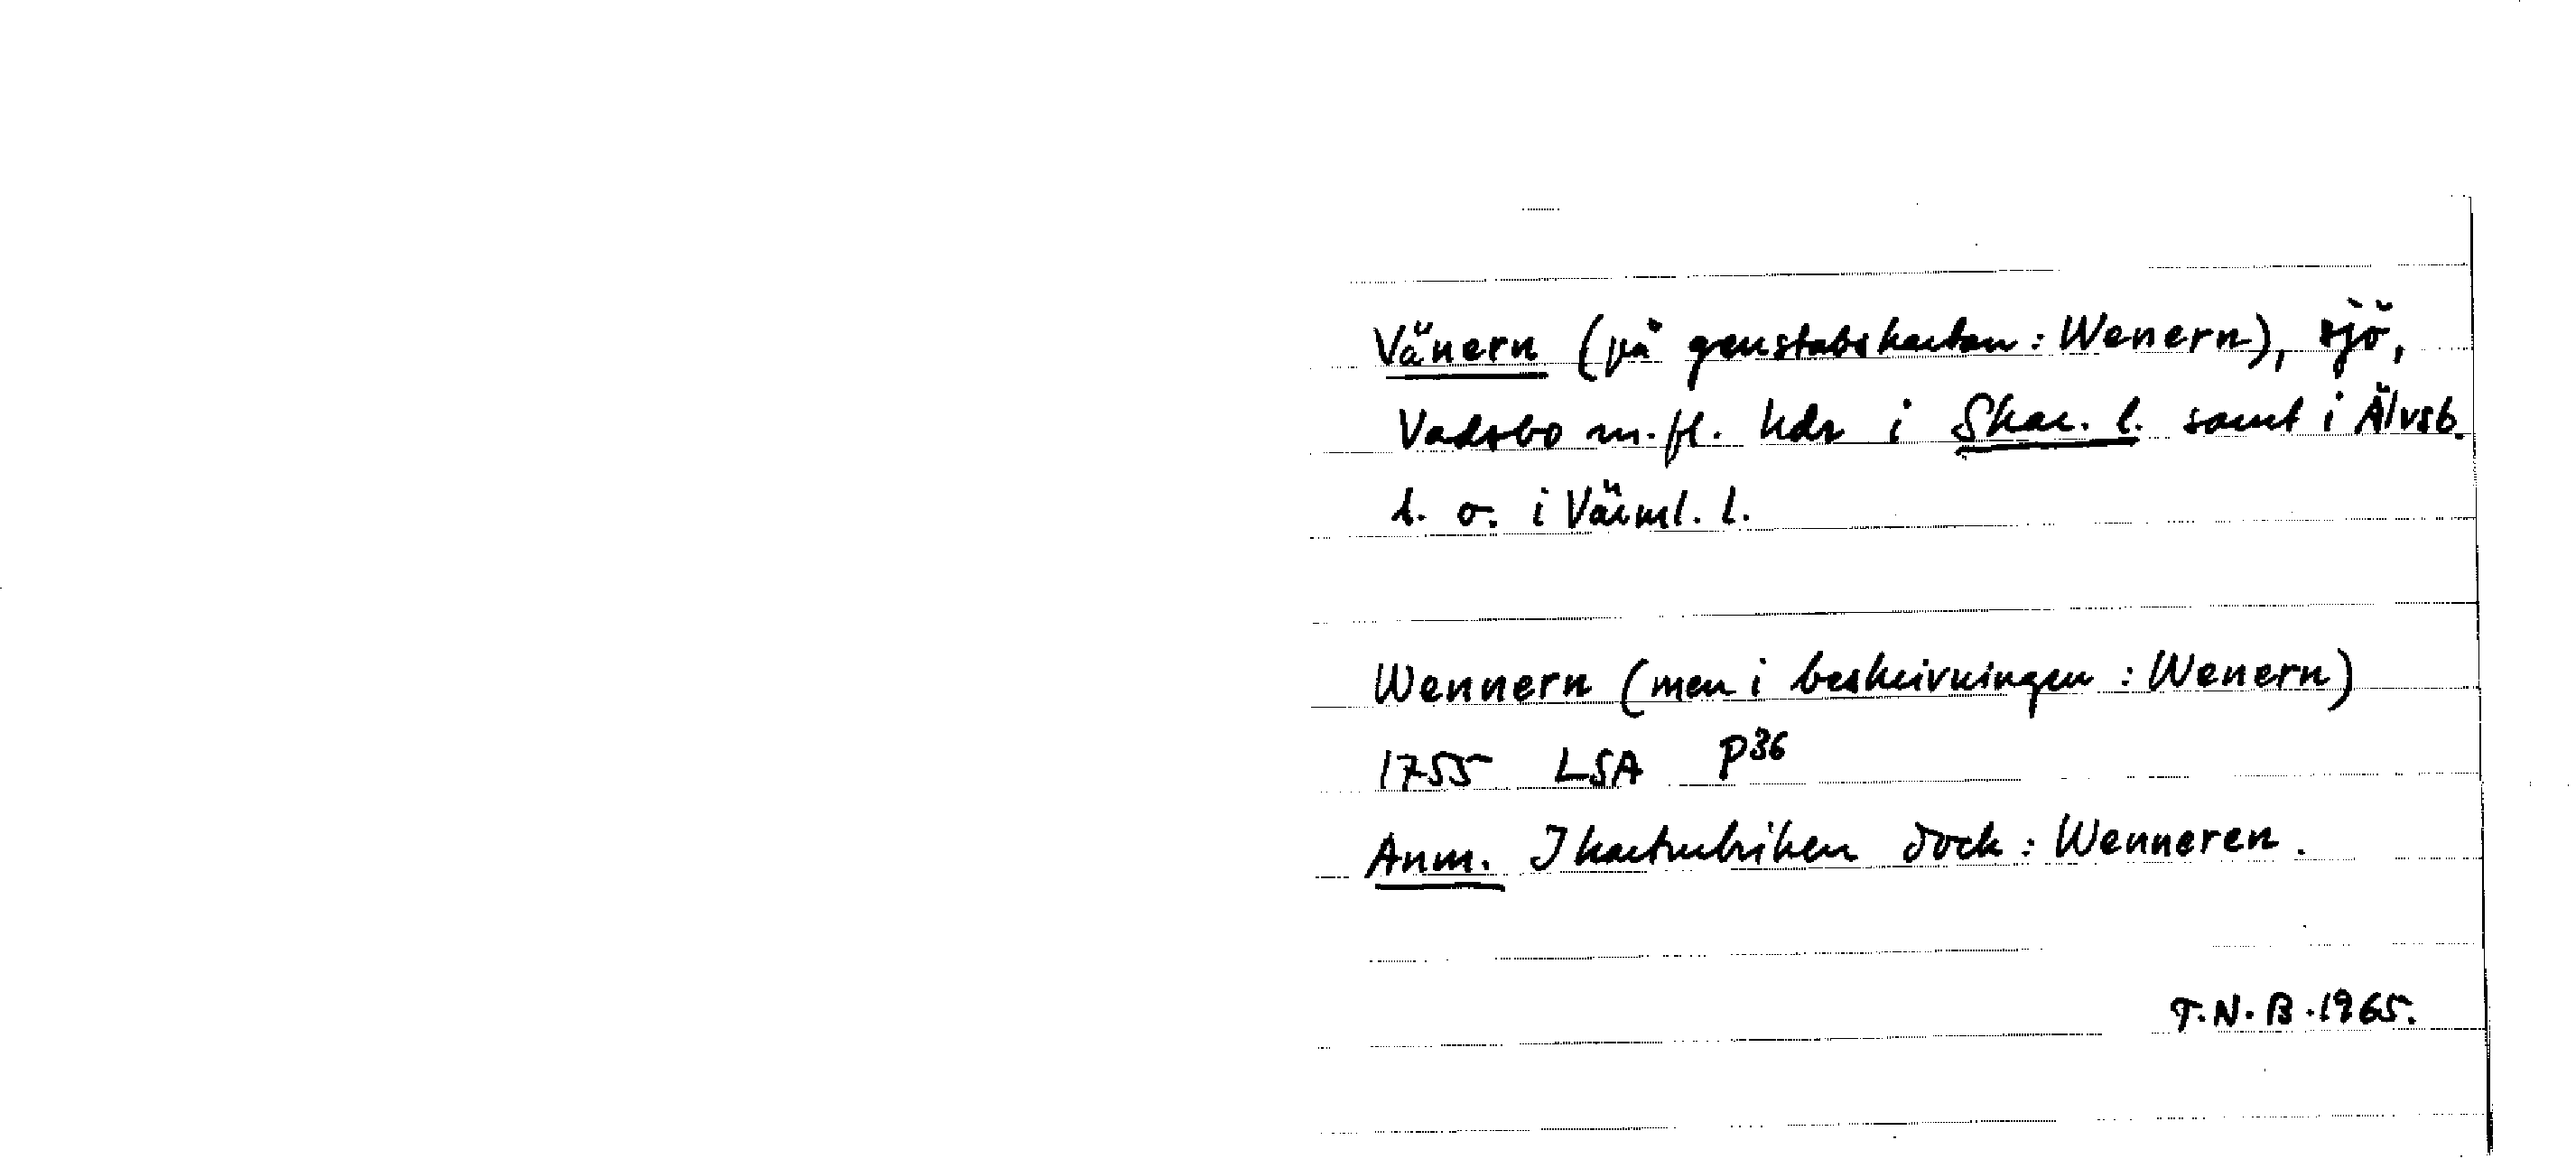 Vänern (på genstabskartan: Wenern), sjö,
Vadsbo m.fl. hdr i Skar. l. samt i Älvsb.
l. o. i Värml. l.
Wennern (men i beskrivningen: Wenern)
1755 LSA P36
Anm. I kartrubriken dock: Wenneren.
T.N.B. 1965.